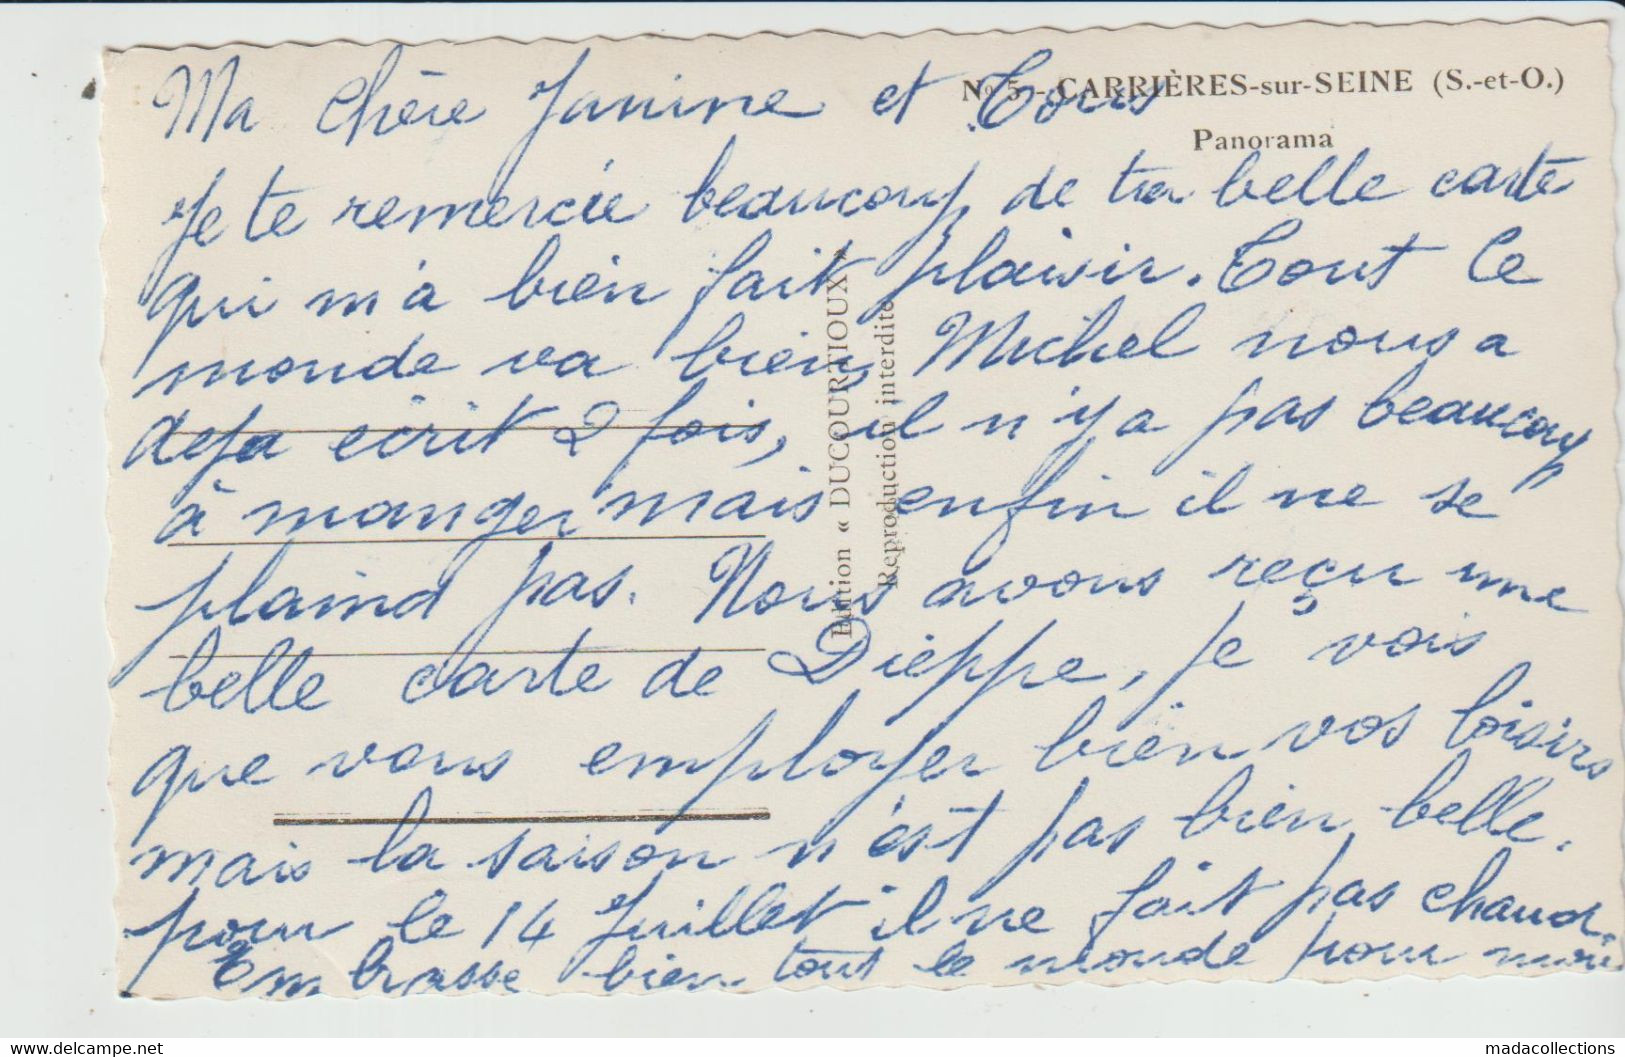 N° 5 - CARRIÈRES-sur-SEINE (S.-et-O.)
Panorama
Ma chère Janine et Tous
Je te remercie beaucoup de ta belle carte
qui m'a bien fait plaisir. Tout le
monde va bien, Michel nous a
deja écrit 2 fois, il n'y a pas beaucoup
à manger mais enfin il ne se
plaind pas. Nous avons reçu une
belle carte de Dieppe, je vois
que vous employer bien vos loisirs
mais la saison n'est pas bien belle.
pour le 14 Juillet il ne fait pas chaud.
Embrasse bien tout le monde pour moi
Edition « DUCOURTIOUX »
Reproduction interdite
www.delcampe.net
madacollections